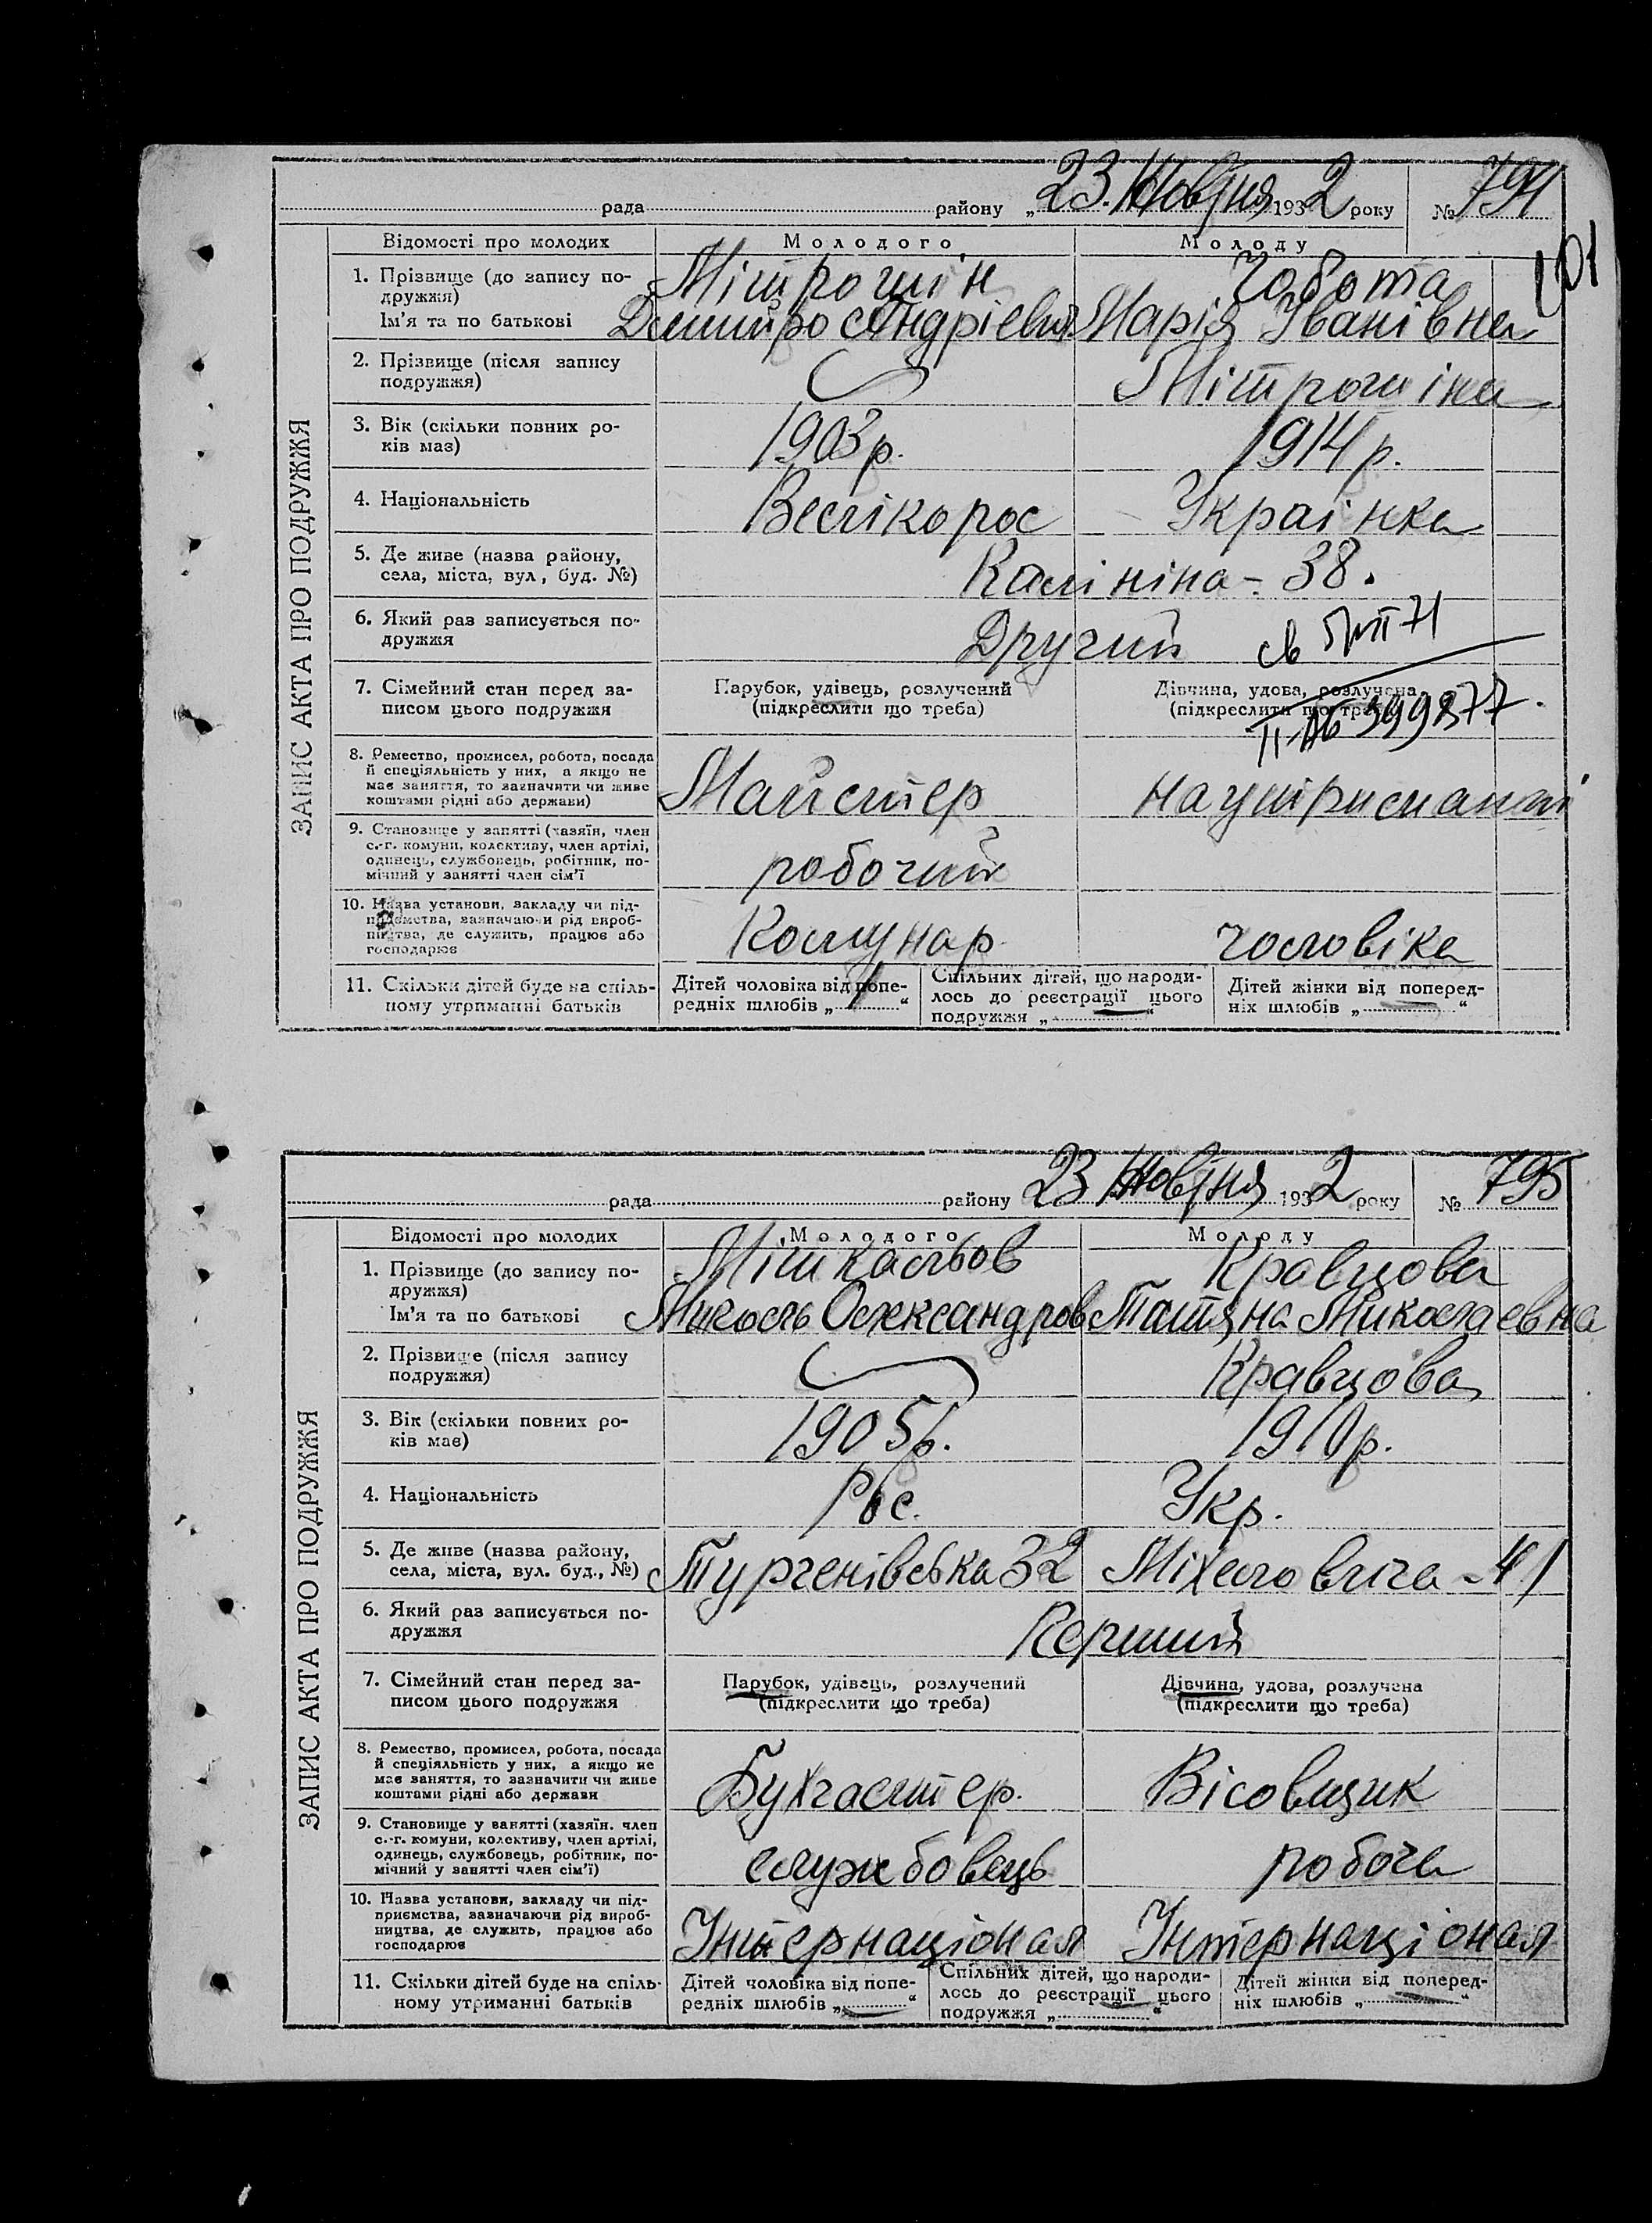 рада району „23 Жовтня 1932 року № 794
101
ЗАПИС АКТА ПРО ПОДРУЖЖЯ
Відомості про молодих Молодого Молоду
1. Прізвище (до запису по- Мітрошін Чобота
дружжя)
Ім'я та по батькові Дмитро Андрієвич Марія Іванівна
2. Прізвище (після запису Мітрошіна
подружжя)
3. Вік (скільки повних ро- 1903 р. 1914 р.
ків має)
4. Національність Велікорос Українка
5. Де живе (назва району, Калініна - 38.
села, міста, вул, буд. №)
6. Який раз записується по- Другий св
дружжя
7. Сімейний стан перед за- Парубок, удівець, розлучений Дівчина, удова, розлучена
писом цього подружжя (підкреслити що треба) (підкреслити що треба)
II-АБ 399877.
8. Ремество, промисел, робота, посада
й спеціяльність у них, а якщо не
має заняття, то зазначити чи живе Майстер на утриманні
коштами рідні або держави)
9. Становище у занятті (хазяїн, член
с.-г. комуни, колективу, член артілі,
одинець, службовець, робітник, по- робочий
мічний у занятті член сім'ї
10. Назва установи, закладу чи під-
приємства, зазначаючи рід вироб-
ництва, де служить, працює або Комунар чоловіка
господарює
11. Скільки дітей буде на спіль- Дітей чоловіка від попе- Спільних дітей, що народи- Дітей жінки від поперед-
ному утриманні батьків редніх шлюбів „ 1 “ лось до реєстрації цього ніх шлюбів „ — “
подружжя „ — “
рада району 23 Жовтня 1932 року № 795
ЗАПИС АКТА ПРО ПОДРУЖЖЯ
Відомості про молодих Молодого Молоду
1. Прізвище (до запису по- Мішкальов Кравцова
дружжя)
Ім'я та по батькові Миколь Олександров Татяна Миколаевна
2. Прізвище (після запису Кравцова
подружжя)
3. Вік (скільки повних ро- 1905 р. 1910 р.
ків має)
4. Національність Рос. Укр.
5. Де живе (назва району, Тургенівська 32 Міхеловича - 41
села, міста, вул. буд., №)
6. Який раз записується по- Перший
дружжя
7. Сімейний стан перед за- Парубок, удівець, розлучений Дівчина, удова, розлучена
писом цього подружжя (підкреслити що треба) (підкреслити що треба)
8. Ремество, промисел, робота, посада
й спеціяльність у них, а якщо не
має заняття, то зазначити чи живе Бухгалтер. Вісовщик
коштами рідні або держави
9. Становище у занятті (хазяїн. член
с.-г. комуни, колективу, член артілі,
одинець, службовець, робітник, по- службовець робоча
мічний у занятті член сім'ї)
10. Назва установи, закладу чи під-
приємства, зазначаючи рід вироб-
ництва, де служить, працює або Інтернаціонал Інтернаціонал
господарює
11. Скільки дітей буде на спіль- Дітей чоловіка від попе- Спільних дітей, що народи- Дітей жінки від поперед-
ному утриманні батьків редніх шлюбів „ — “ лось до реєстрації цього ніх шлюбів „ — “
подружжя „ “